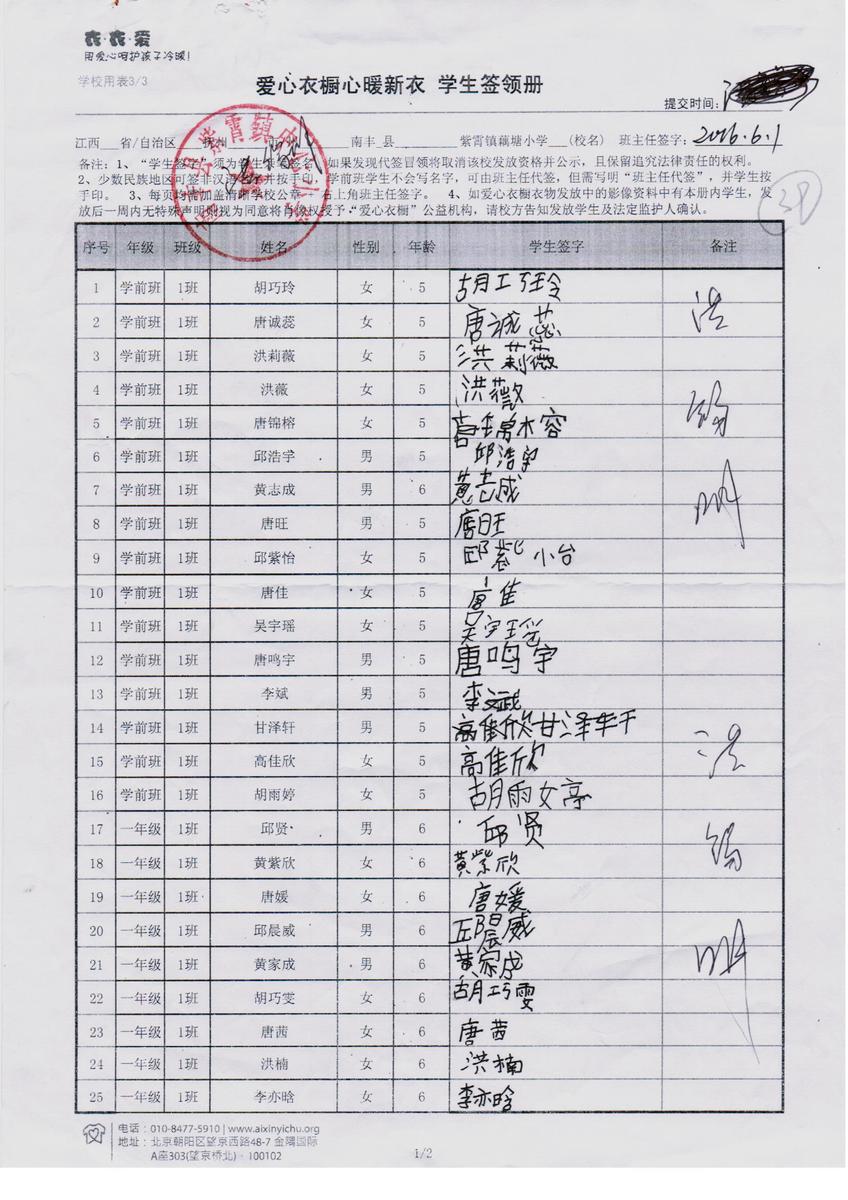 衣·衣·爱
用爱心呵护孩子冷暖!
学校用表3/3
爱心衣橱心暖新衣 学生签领册
提交时间:
江西 省/自治区 南丰 县 紫霄镇藕塘小学 (校名) 班主任签字: 2016.6.1
备注: 1、“学生签 须为 如果发现代签冒领将取消该校发放资格并公示，且保留追究法律责任的权利。
2、少数民族地区可签非汉 并按手印，学前班学生不会写名字，可由班主任代签，但需写明“班主任代签”，并学生按
手印。 3、每页 加盖清晰学校公章，右上角班主任签字。 4、如爱心衣橱衣物发放中的影像资料中有本册内学生，发
放后一周内无特殊声明 视为同意将肖像权授予“爱心衣橱”公益机构，请校方告知发放学生及法定监护人确认。
38
序号 年级 班级 姓名 性别 年龄 学生签字 备注
1 学前班 1班 胡巧玲 女 5 胡巧玲
2 学前班 1班 唐诚蕊 女 5 唐诚蕊
3 学前班 1班 洪莉薇 女 5 洪莉薇
4 学前班 1班 洪薇 女 5 洪薇
5 学前班 1班 唐锦榕 女 5 唐锦榕
6 学前班 1班 邱浩宇 男 5 邱浩宇
7 学前班 1班 黄志成 男 6 黄志成
8 学前班 1班 唐旺 男 5 唐旺
9 学前班 1班 邱紫怡 女 5 邱紫怡
10 学前班 1班 唐佳 女 5 唐佳
11 学前班 1班 吴宇瑶 女 5 吴宇瑶
12 学前班 1班 唐鸣宇 男 5 唐鸣宇
13 学前班 1班 李斌 男 5 李斌
14 学前班 1班 甘泽轩 男 5 高佳欣甘泽轩
15 学前班 1班 高佳欣 女 5 高佳欣
16 学前班 1班 胡雨婷 女 5 胡雨婷
17 一年级 1班 邱贤 男 6 邱贤
18 一年级 1班 黄紫欣 女 6 黄紫欣
19 一年级 1班 唐媛 女 6 唐媛
20 一年级 1班 邱晨威 男 6 邱晨威
21 一年级 1班 黄家成 男 6 黄家成
22 一年级 1班 胡巧雯 女 6 胡巧雯
23 一年级 1班 唐茜 女 6 唐茜
24 一年级 1班 洪楠 女 6 洪楠
25 一年级 1班 李亦晗 女 6 李亦晗
电话: 010-8477-5910 | www.aixinyichu.org
地址: 北京朝阳区望京西路48-7 金隅国际
A座303(望京桥北) · 100102
1/2